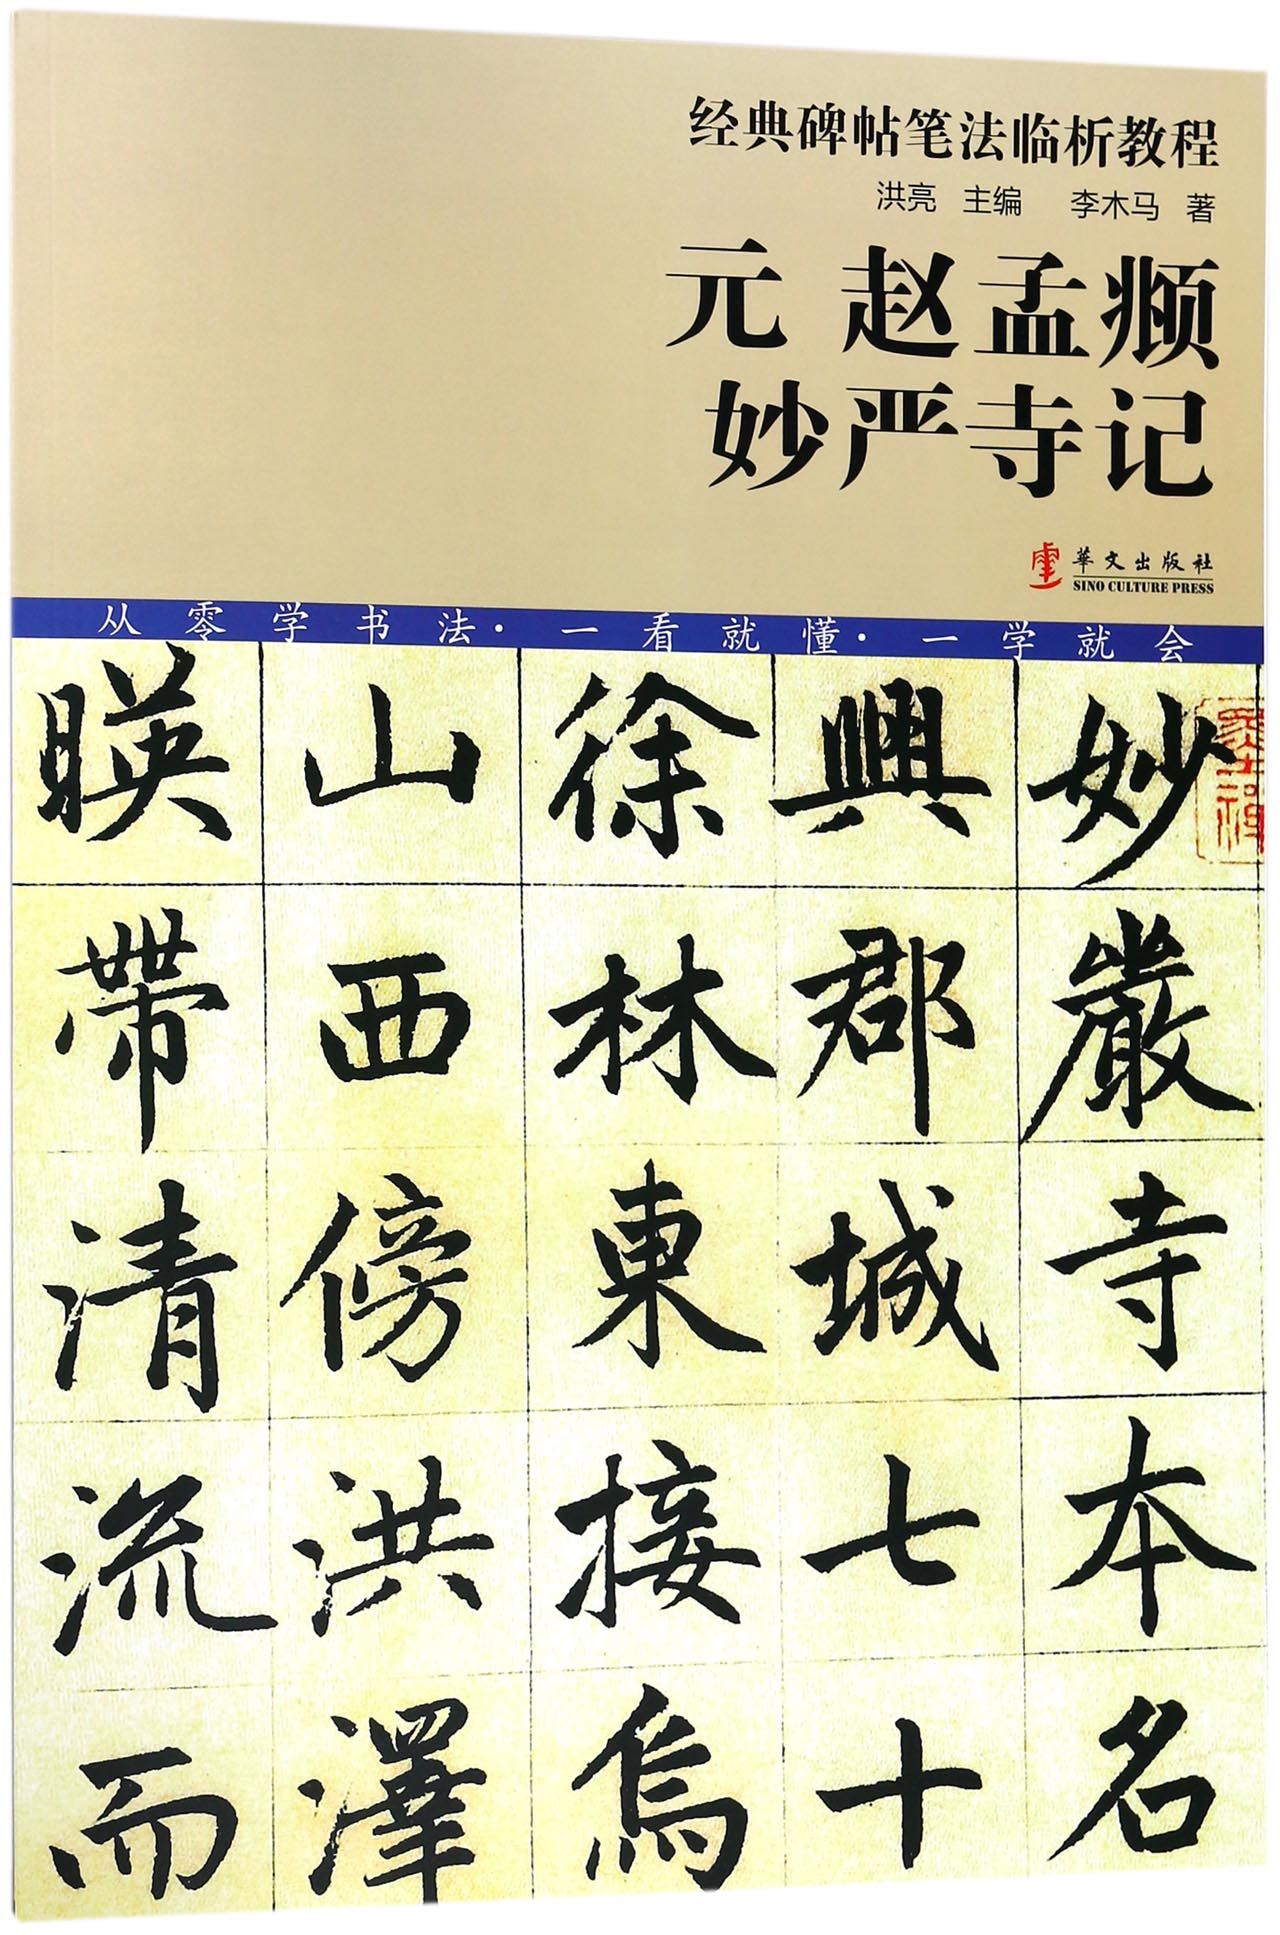 经典碑帖笔法临析教程
洪亮 主编 李木马 著
元 赵孟𫖯
妙严寺记
華文出版社
SINO CULTURE PRESS
从零学书法·一看就懂·一学就会
妙嚴寺本名
興郡城七十
徐林東接烏
山西傍洪澤
暎帶清流而